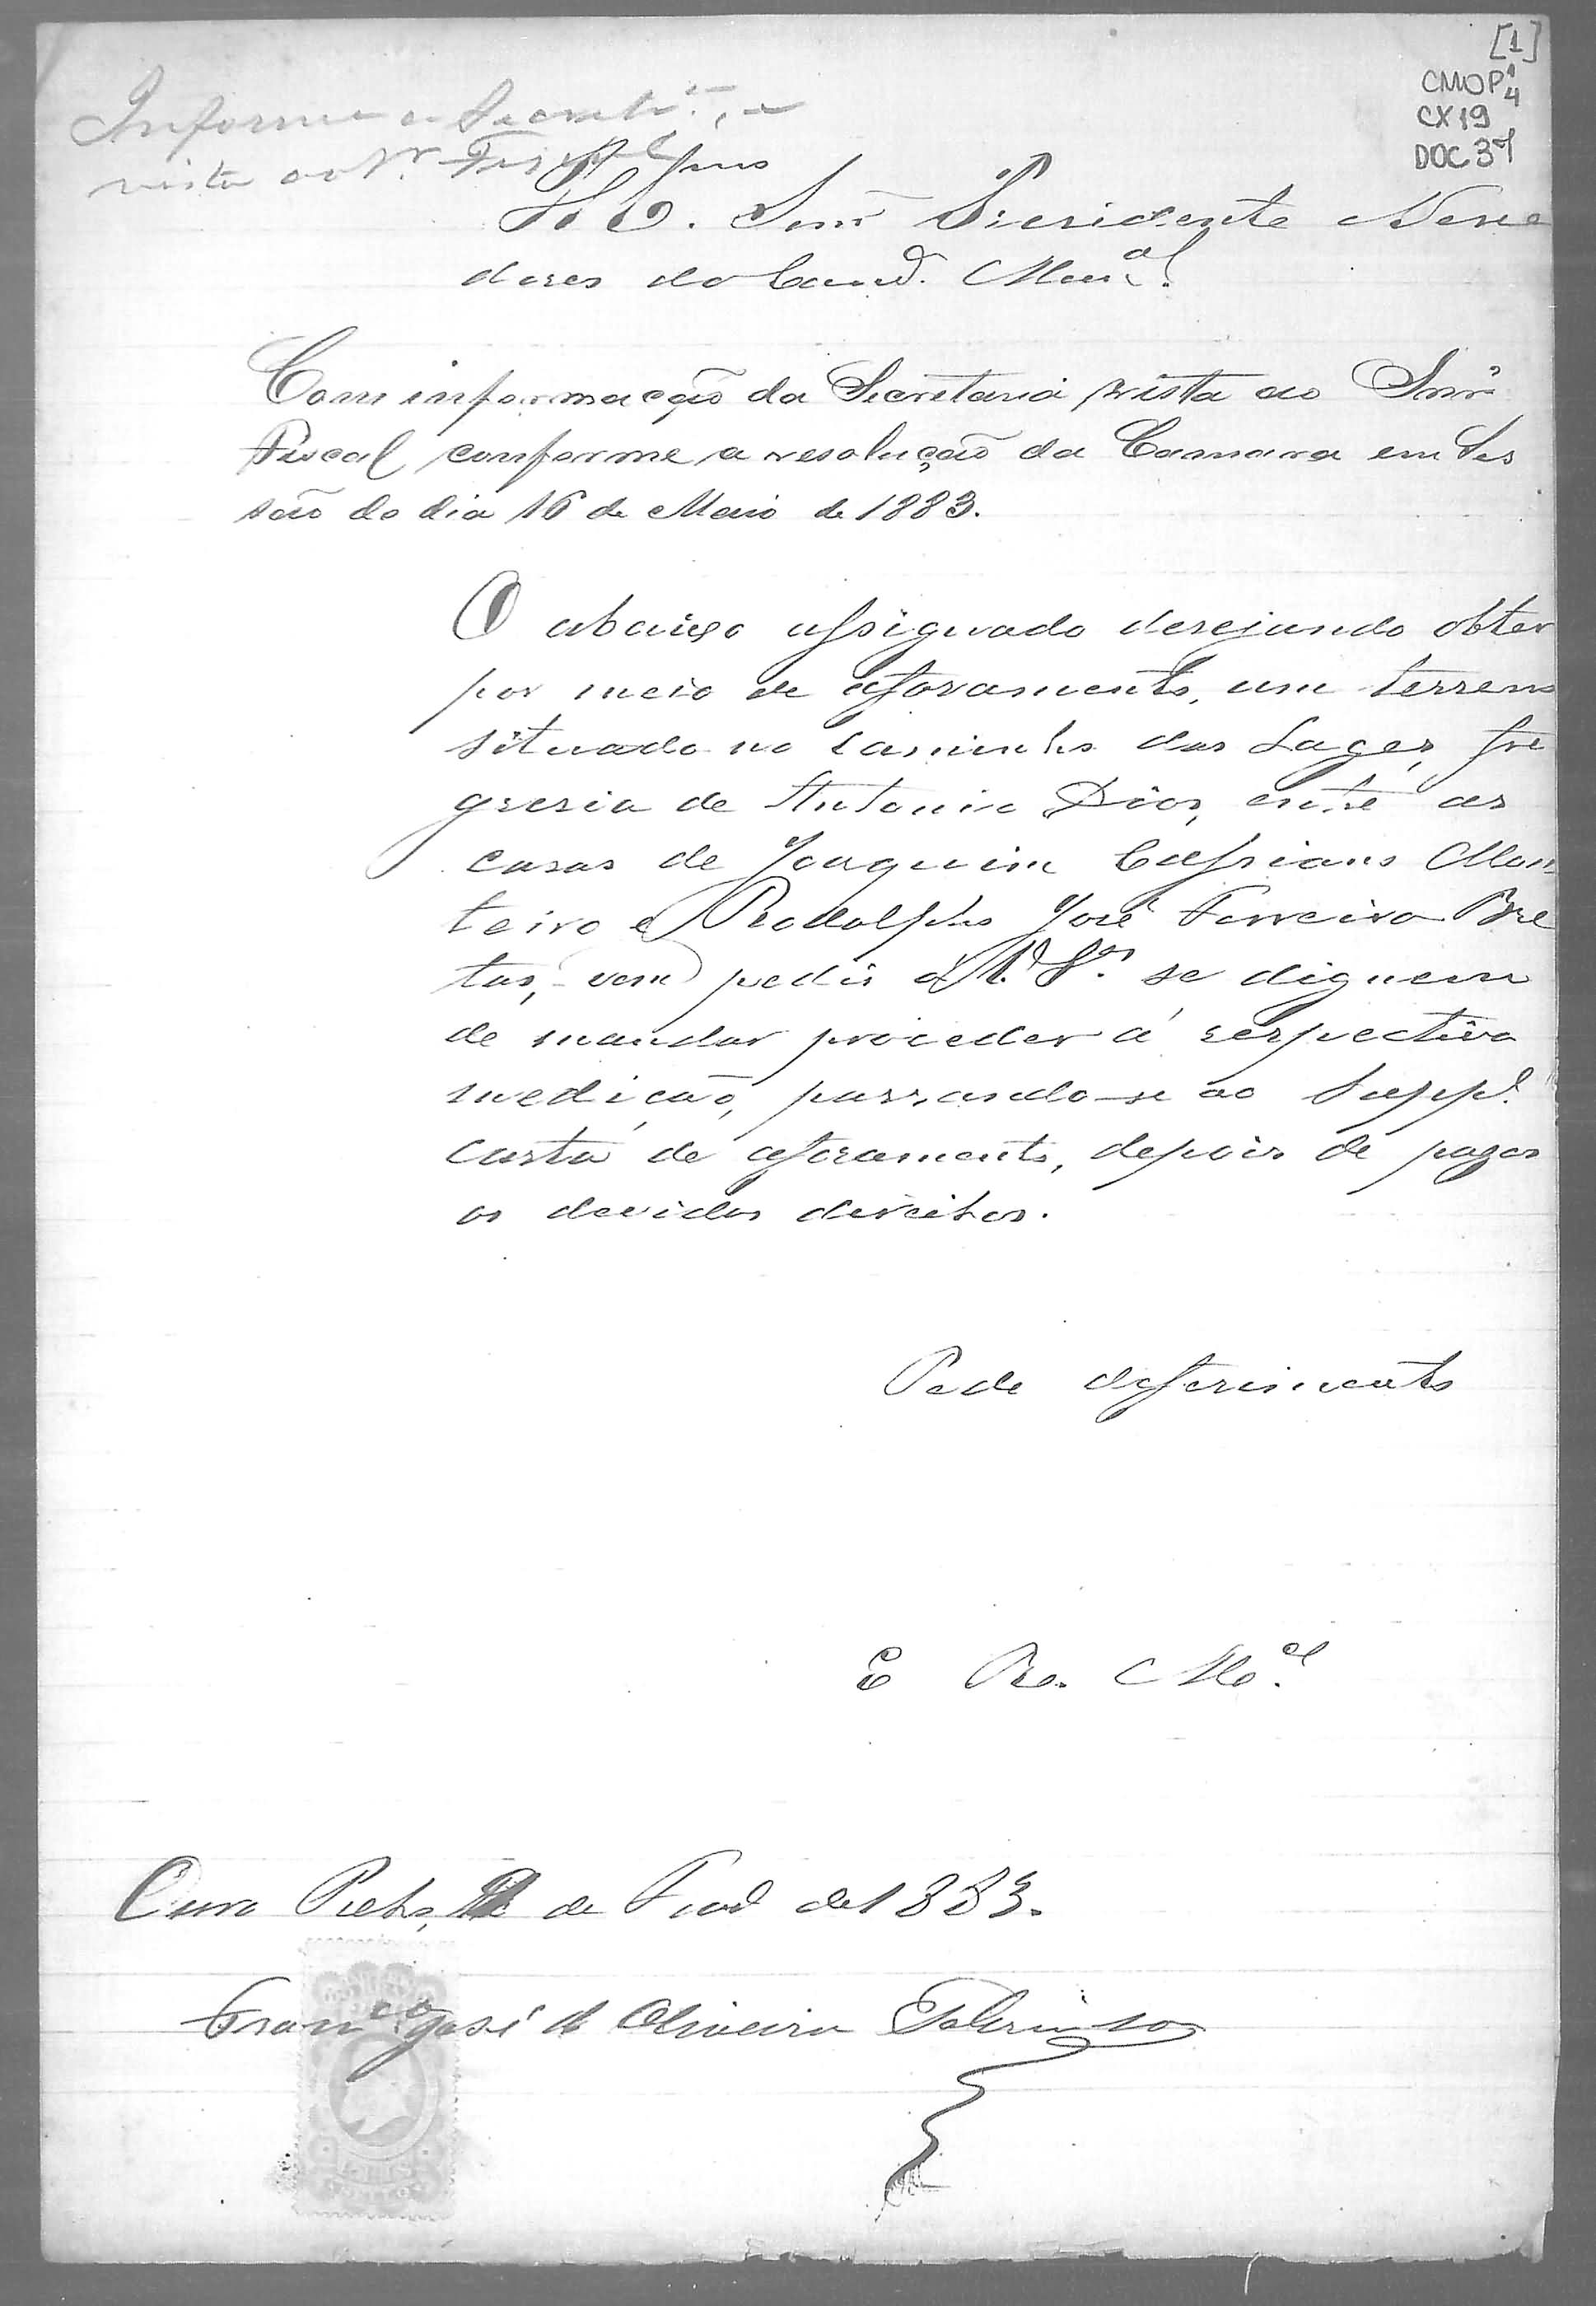 [1]
CMOP 1/4
CX 19
DOC 37
Informe a Secretr.ª, e
vista ao Sr. Fiscal
Ill.mos
Snr. Presidente Verea
dores da Cam.ª Mun.al
Com informação da Secretaria vista ao Snr.
Fiscal conforme a resolução da Camara em Ses
são do dia 16 de Maio de 1883.
O abaixo assignado desejando obter
por meio de aforamento, um terreno
situado no caminho das Lages, fre
guesia de Antonio Dias, entre as
casas de Joaquim Cassiano Mon
teiro e Rodolpho José Ferreira Bre
tas, vem pedir a V. S.as se dignem
de mandar proceder á respectiva
medição, passando-se ao Supp.e
carta de aforamento, depois de pagos
os devidos direitos.
Pede deferimento
E R. M.ce
Ouro Preto, de de 1883.
Fran.co José de Oliveira